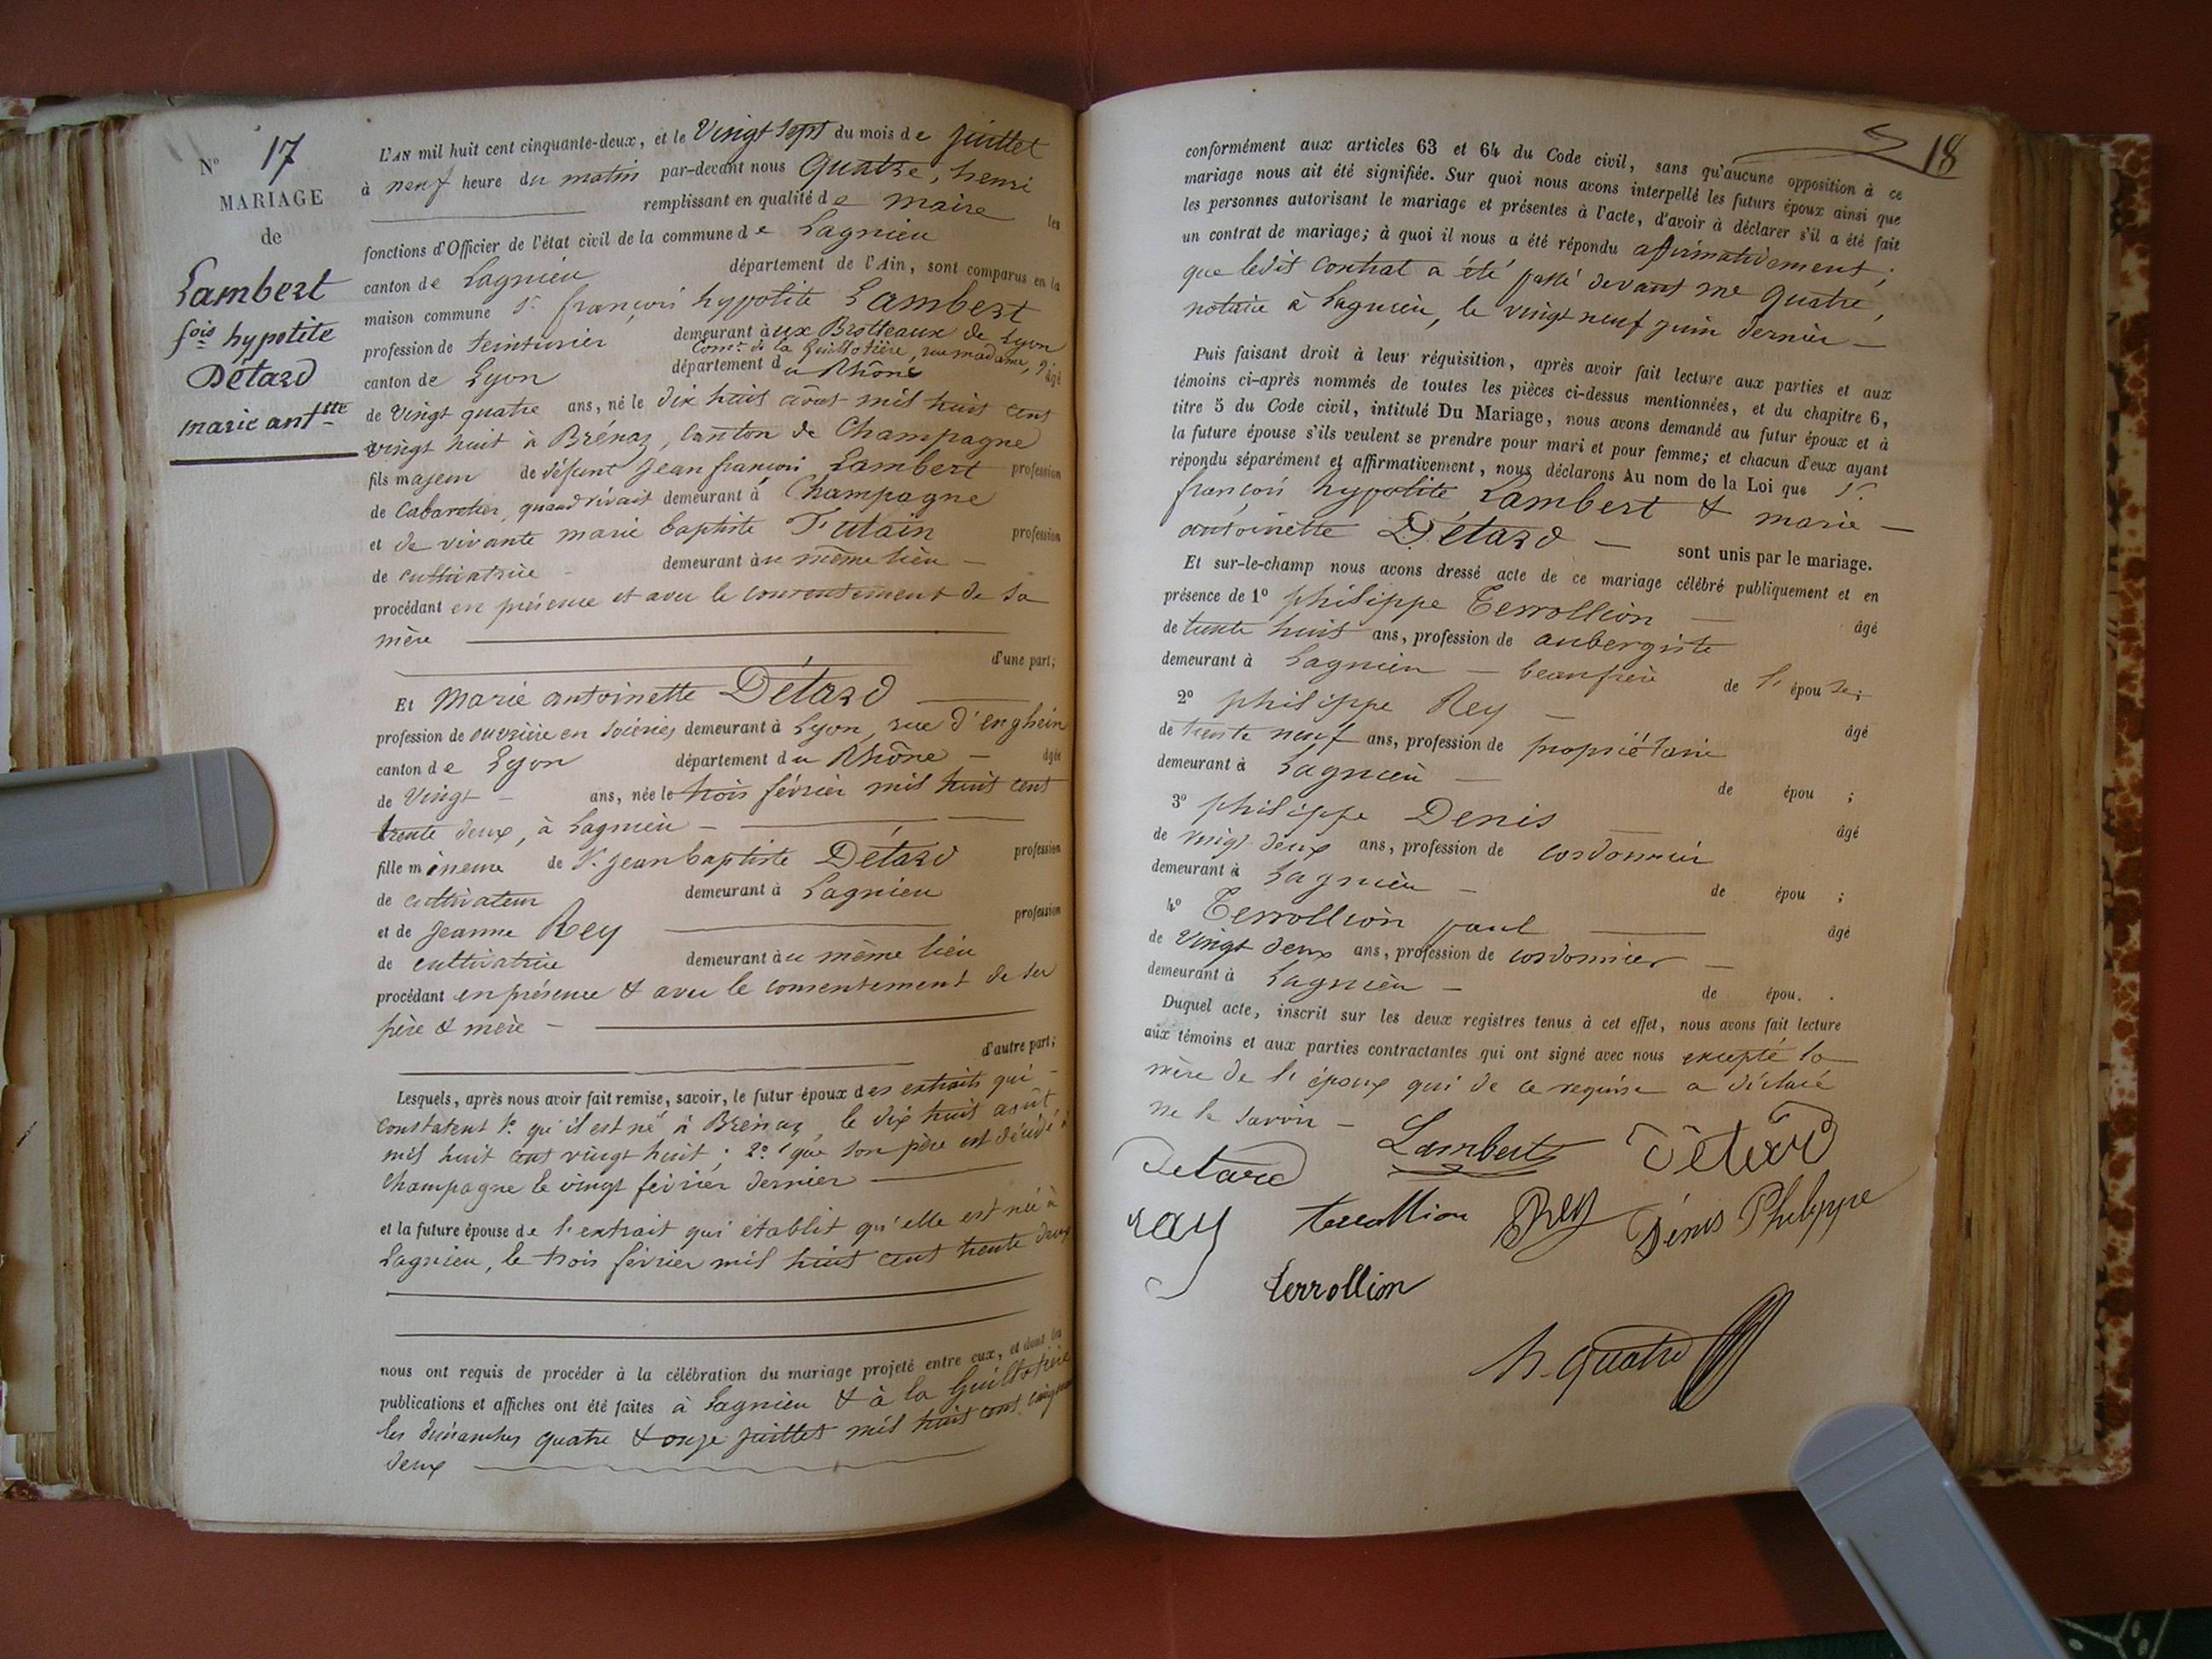 N° 17
MARIAGE
de
Lambert
fois hypolite
Détard
marie antte
L'AN mil huit cent cinquante-deux, et le Vingt sept du mois de juillet
à neuf heure du matin par-devant nous Quatre, henri
remplissant en qualité de maire les
fonctions d'Officier de l'état civil de la commune de Lagnieu
canton de Lagnieu département de l'Ain, sont comparus en la
maison commune Sr. françois hypolite Lambert
profession de teinturier demeurant à ux Brotteaux de Lyon
Comne de la Guillotière, rue madame, 9
canton de Lyon département du Rhône âgé
de Vingt quatre ans, né le dix huit août mil huit cent
vingt huit à Brénaz, Canton de Champagne
fils majeur de défunt Jean françois Lambert profession
de Cabaretier, quand vivait demeurant à Champagne
et de vivante marie baptiste Tutain profession
de cultivatrice demeurant à u même lieu
procédant en présence et avec le consentement de sa
mère
d'une part;
Et Marie antoinette Détard
profession de ouvrière en soieries demeurant à Lyon, rue d'enghein
canton de Lyon département du Rhône âgée
de Vingt ans, née le trois février mil huit cent
trente deux, à Lagnieu
fille mineure de Sr. jean baptiste Détard profession
de cultivateur demeurant à Lagnieu
et de jeanne Rey profession
de cultivatrice demeurant à u même lieu
procédant en présence & avec le consentement de ses
père & mère
d'autre part;
Lesquels, après nous avoir fait remise, savoir, le futur époux des extraits qui
constatent 1° qu'il est né à Brénaz, le dix huit août
mil huit cent vingt huit; 2° que son père est décédé à
Champagne le vingt février dernier
et la future épouse de l'extrait qui établit qu'elle est née à
Lagnieu, le trois février mil huit cent trente deux
nous ont requis de procéder à la célébration du mariage projeté entre eux, et dont les
publications et affiches ont été faites à Lagnieu & à la Guillotière
les dimanches quatre & onze juillet mil huit cent cinquante
deux
18
conformément aux articles 63 et 64 du Code civil, sans qu'aucune opposition à ce
mariage nous ait été signifiée. Sur quoi nous avons interpellé les futurs époux ainsi que
les personnes autorisant le mariage et présentes à l'acte, d'avoir à déclarer s'il a été fait
un contrat de mariage; à quoi il nous a été répondu affirmativement;
que ledit contrat a été passé devant me Quatre,
notaire à Lagnieu, le vingt neuf juin dernier
Puis faisant droit à leur réquisition, après avoir fait lecture aux parties et aux
témoins ci-après nommés de toutes les pièces ci-dessus mentionnées, et du chapitre 6,
titre 5 du Code civil, intitulé Du Mariage, nous avons demandé au futur époux et à
la future épouse s'ils veulent se prendre pour mari et pour femme; et chacun d'eux ayant
répondu séparément et affirmativement, nous déclarons Au nom de la Loi que Sr.
françois hypolite Lambert & marie
antoinette Détard sont unis par le mariage.
Et sur-le-champ nous avons dressé acte de ce mariage célébré publiquement et en
présence de 1° philippe Terrollion âgé
de trente huit ans, profession de aubergiste
demeurant à Lagnieu beaufrère de l' épouse;
2° philippe Rey âgé
de trente neuf ans, profession de propriétaire
demeurant à Lagnieu de épou ;
3° philippe Denis âgé
de vingt deux ans, profession de cordonnier
demeurant à Lagnieu de épou ;
4° Terrollion paul âgé
de Vingt deux ans, profession de cordonnier
demeurant à Lagnieu de épou.
Duquel acte, inscrit sur les deux registres tenus à cet effet, nous avons fait lecture
aux témoins et aux parties contractantes qui ont signé avec nous excepté la
mère de l'époux qui de ce requise a déclaré
ne le savoir
Lambert Détard
Detard
ray terrollion Rey Dénis Philippe
terrollion
h. quatre